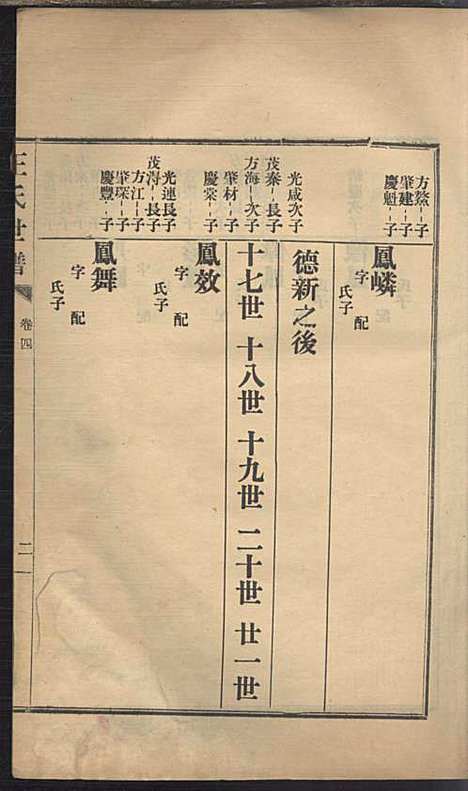 方鰲一子
肇建一子
慶魁一子
鳳嶙
字 配
氏子
光咸次子
德新之後
茂泰一長子
方海一次子
十七世 十八世 十九世 二十世 廿一世
肇材一子
慶棠一子
鳳效
字 配
氏子
光連長子
茂淂一長子
方江一子
肇琛一子
慶豐一子
鳳舞
字 配
氏子
王氏世譜
卷四
二